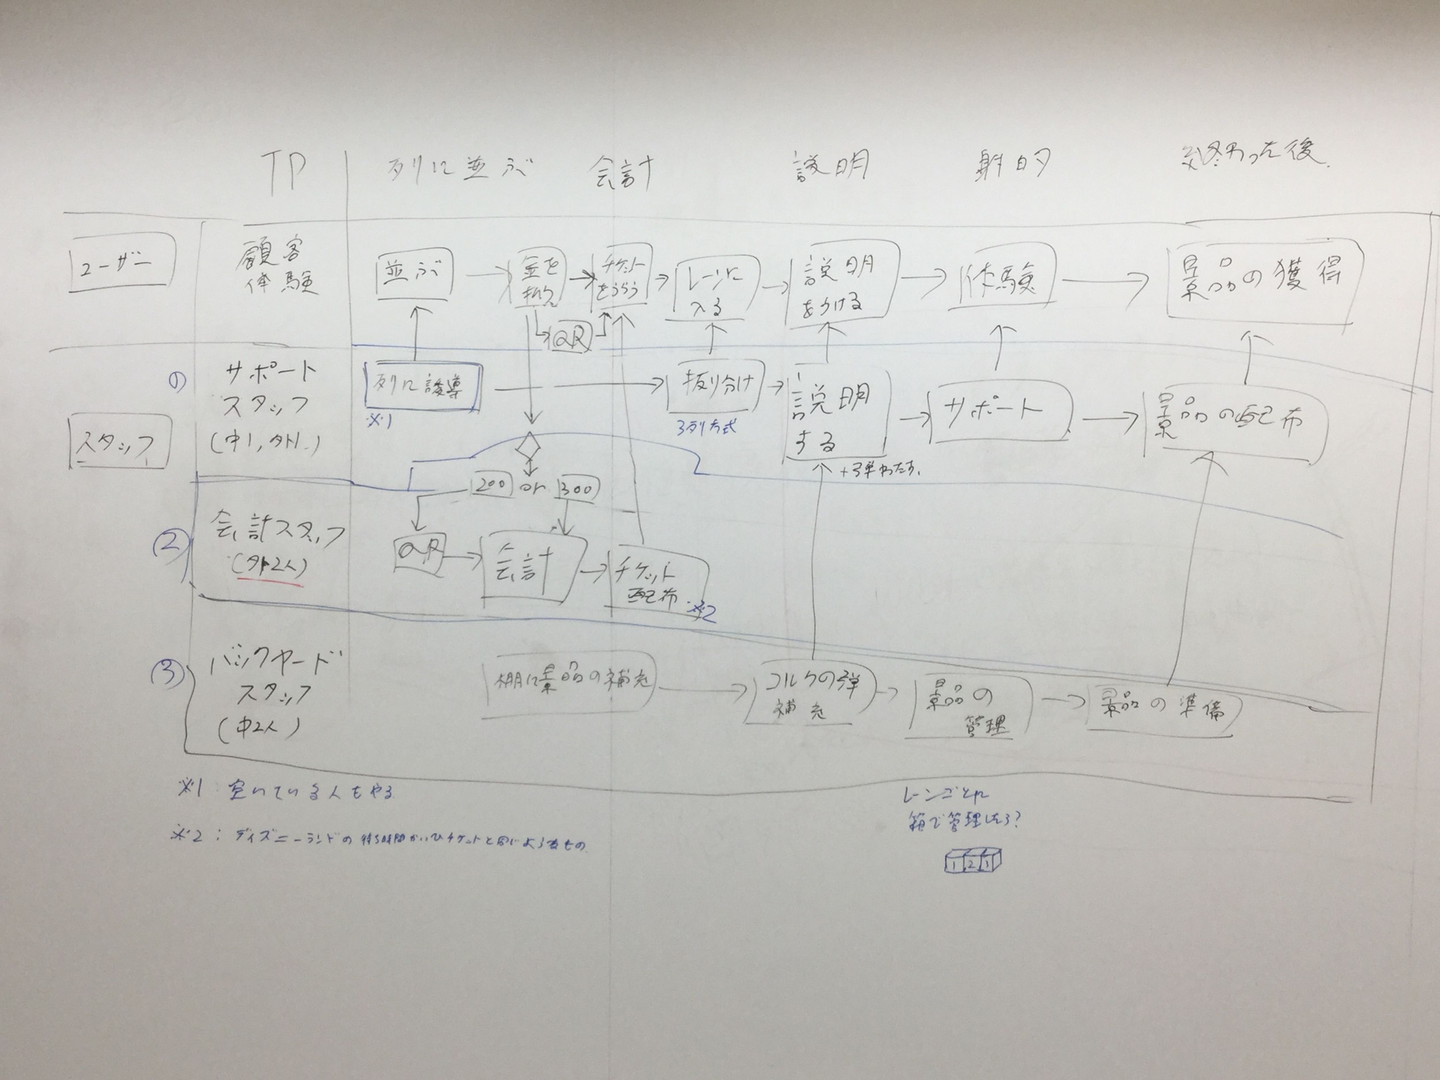 TP 列に並ぶ 会計 説明 射的 終わった後
ユーザー
顧客
体験
並ぶ
金を
払う
QR
チケット
をもらう
レーンに
入る
説明
をうける
体験
景品の獲得
①
スタッフ
サポート
スタッフ
(中1,外1)
列に誘導
※1
振り分け
3列方式
説明
する
+弾わたす。
サポート
景品の配布
200 or 300
②
会計スタッフ
(外2人)
QR
会計
チケット
配布 ※2
③
バックヤード
スタッフ
(中2人)
棚に景品の補充
コルクの弾
補充
景品の
管理
景品の準備
※1: 空いている人もやる
※2: ディズニーランドの待ち時間かいたチケットと同じような もの
レーンごとに
箱で管理したら?
1 2